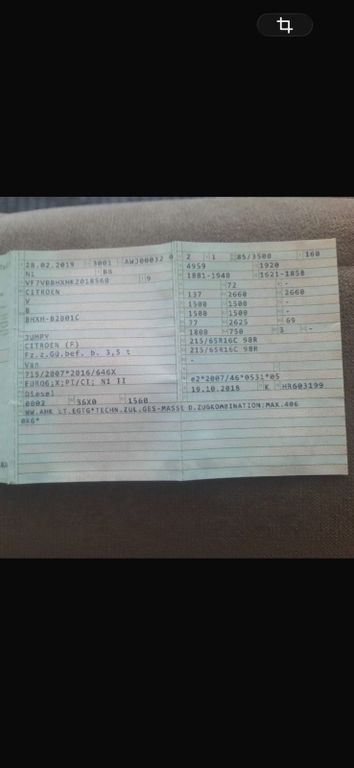 28.02.2019 3001 AWJ00032 0
N1 BB 9
CITROEN
V
B
BHXM-B2B01C
JUMPY
CITROEN (F)
Fz.z.Gü.bef. b. 3,5 t
Van
715/2007*2016/646X
EURO6;X;PI/CI; N1 II
Diesel
0002 36X0 1560
2 1 85/3500 160
4959 1920
1881-1940 1621-1858
72 -
137 2660 2660
1500 1500 -
1500 1500 -
77 2625 69
1800 750 3 -
215/65R16C 98R
215/65R16C 98R
-
e2*2007/46*0531*05
19.10.2018 K HR603199
WW.AHK LT.EGTG*TECHN.ZUL.GES-MASSE D.ZUGKOMBINATION:MAX.406
0KG*